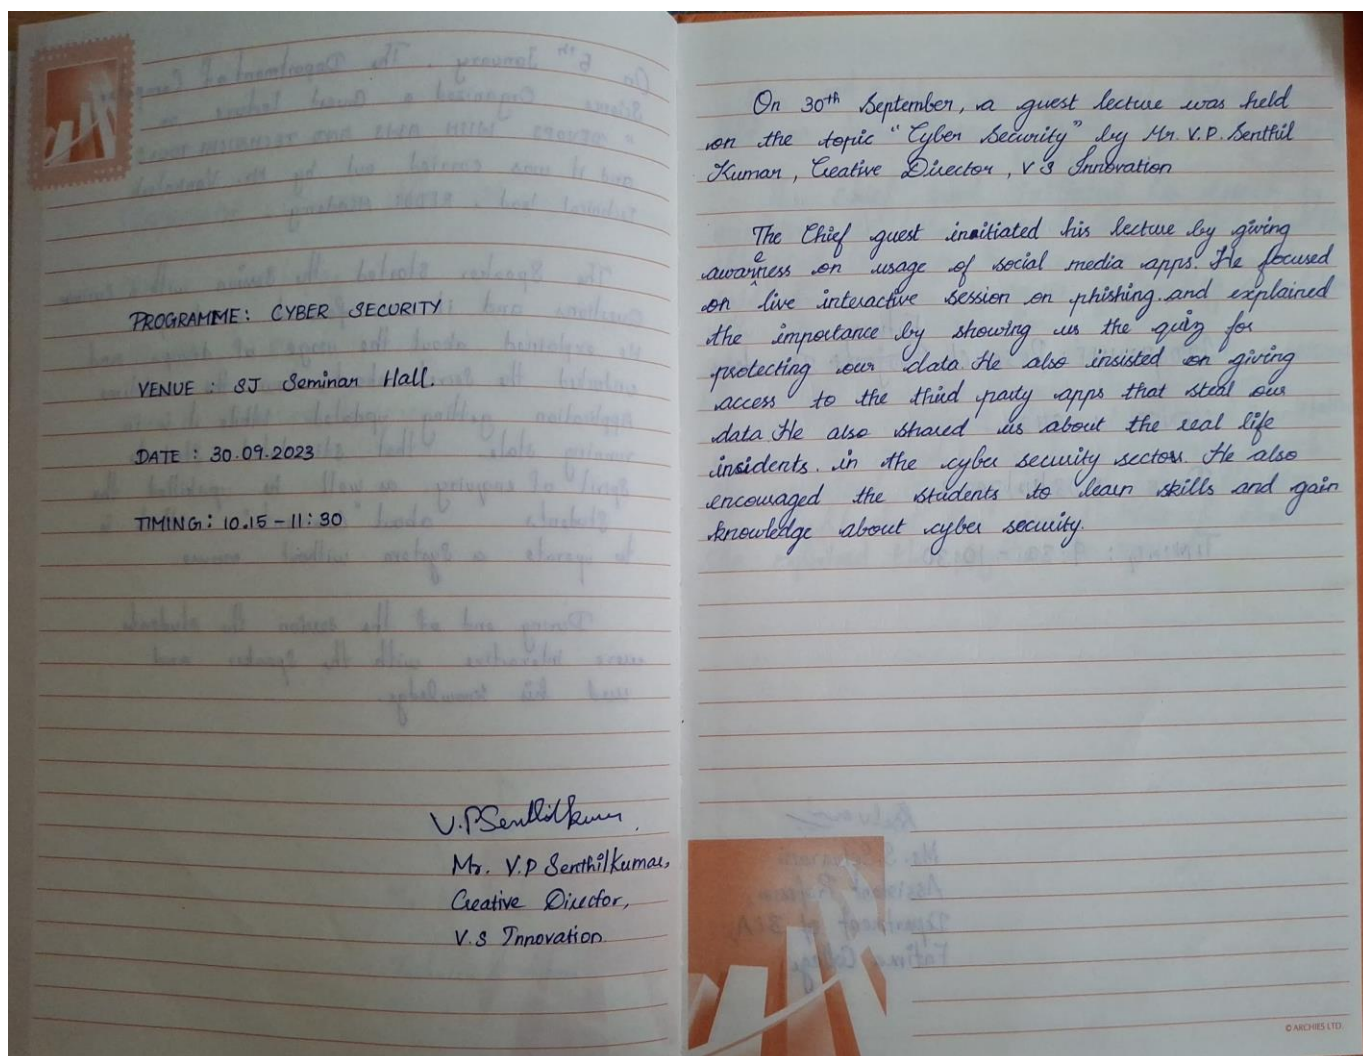 PROGRAMME: CYBER SECURITY
VENUE : SJ Seminar Hall.
DATE : 30.09.2023
TIMING: 10.15 - 11:30
V.P Senthilkumar
Mr. V.P Senthilkumar,
Creative Director,
V.S Innovation.
On 30th September, a guest lecture was held
on the topic "Cyber Security" by Mr. V.P. Senthil
Kumar, Creative Director, V S Innovation
The Chief guest initiated his lecture by giving
awareness on usage of social media apps. He focused
on live interactive session on phishing and explained
the importance by showing us the quiz for
protecting our data. He also insisted on giving
access to the third party apps that steal our
data. He also shared us about the real life
insidents. in the cyber security sectors. He also
encouraged the students to learn skills and gain
knowledge about cyber security.
© ARCHIES LTD.